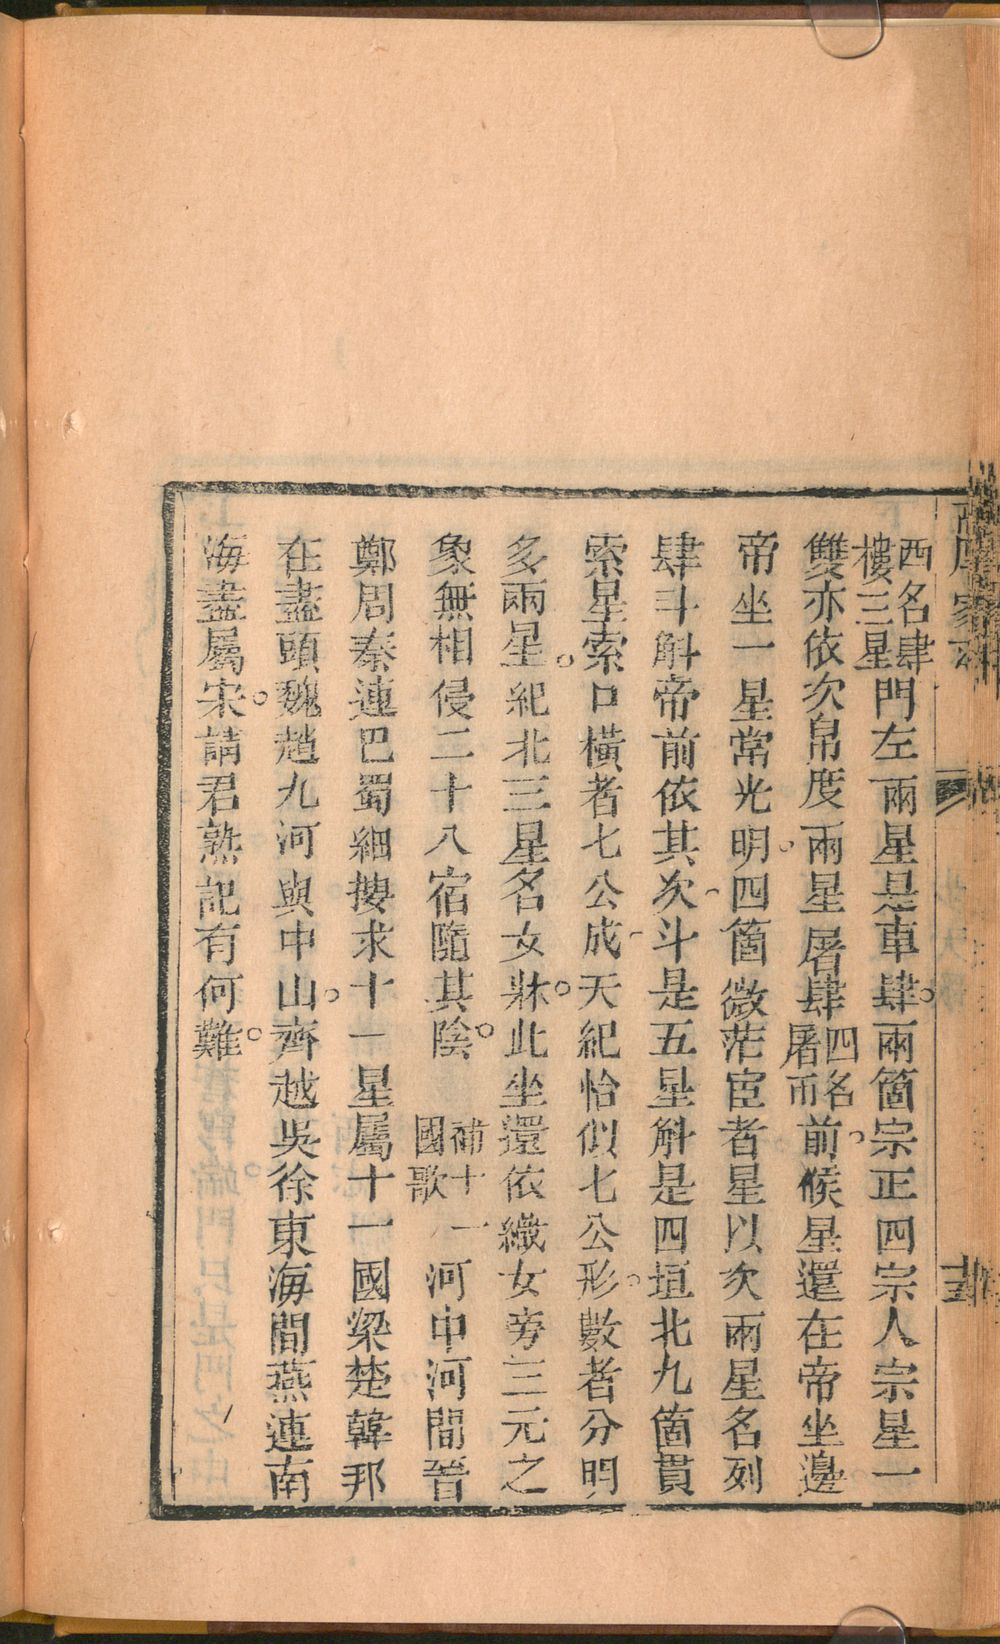 西名肆樓三星門左兩星是車肆。兩箇宗正四宗人宗星一
雙亦依次帛度兩星屠肆四名屠币前。候星還在帝坐邊
帝坐一星常光明。四箇微茫宦者星以次兩星名列
肆斗斛帝前依其次。斗是五星斛是四垣北九箇貫
索星索口橫者七公成。天紀恰似七公形。數者分明
多兩星。紀北三星名女牀。此坐還依織女旁三元之
象無相侵二十八宿隨其陰。補十一國歌河中河間晉
鄭周秦連巴蜀細摟求十一星屬十一國梁楚韓邦
在盡頭魏趙九河與中山。齊越吳徐東海間燕連南
海盡屬宋。請君熟記有何難。